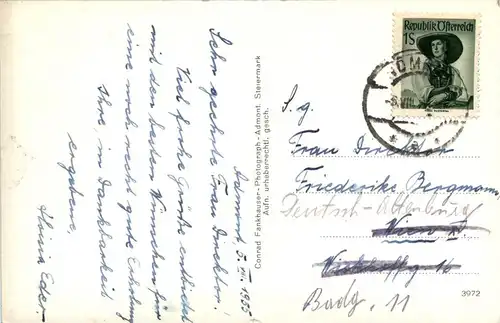 Admont, 5. VII. 1955
Sehr geehrte Frau Direktor!
Viel frohe Grüße entbietet
mit den besten Wünschen für
eine noch recht gute Erholung
Ihre, in Dankbarkeit
ergebene,
Eder.
Conrad Fankhauser-Photograph-Admont, Steiermark
Aufn. urheberrechtl. gesch.
Republik Österreich
1S
S. g.
Frau Direktor
Friederike Bergmann
Deutsch-Altenburg
Wien
Badg. 11
3972